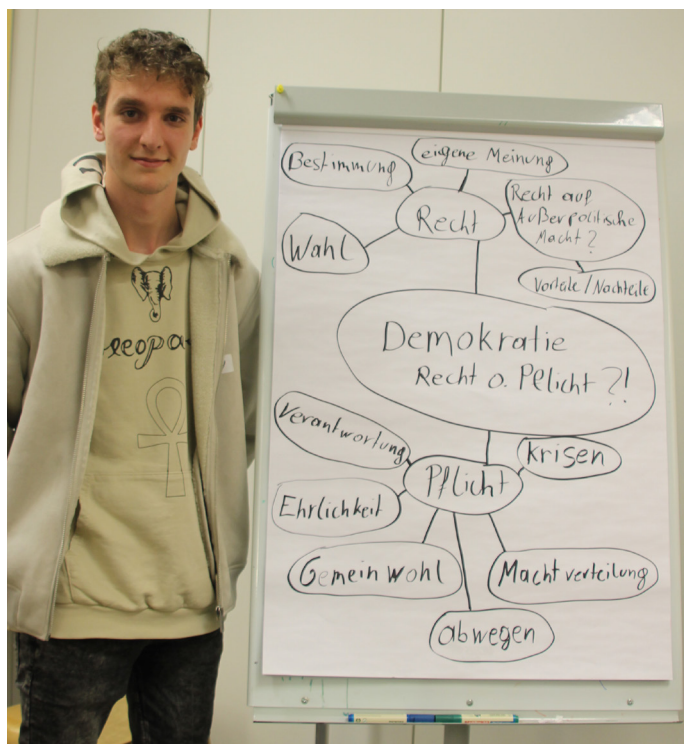 eigene Meinung
Bestimmung
Recht
Recht auf
Außerpolitische
Macht?
Wahl
Vorteile/Nachteile
Demokratie
Recht o. Pflicht?!
Verantwortung
Krisen
Pflicht
Ehrlichkeit
Gemeinwohl
Machtverteilung
abwegen